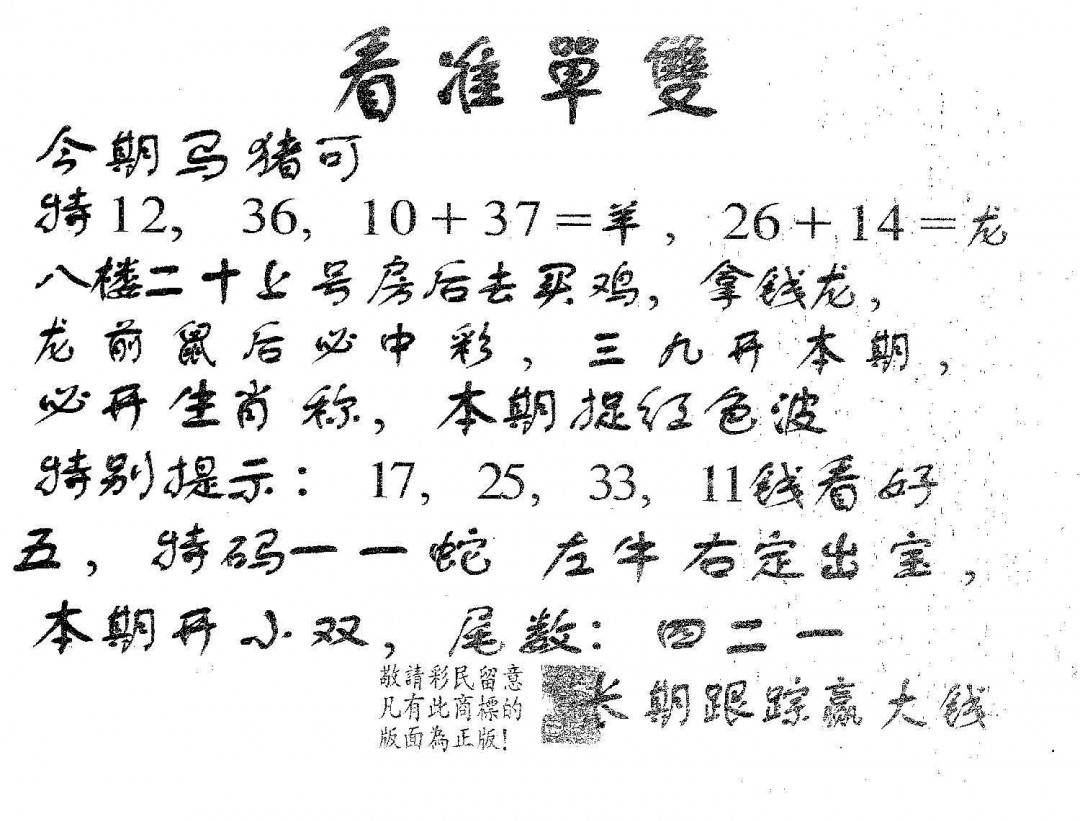 看准單雙
今期马猪可
特12, 36, 10+37=羊, 26+14=龙
八楼二十上号房后去买鸡, 拿钱龙,
龙前鼠后必中彩, 三九开本期,
必开生肖称, 本期捉红色波
特别提示: 17, 25, 33, 11钱看好
五, 特码一一蛇 左牛右定出宝,
本期开小双, 尾数: 四二一
敬請彩民留意
凡有此商標的
版面為正版!
长期跟踪赢大钱